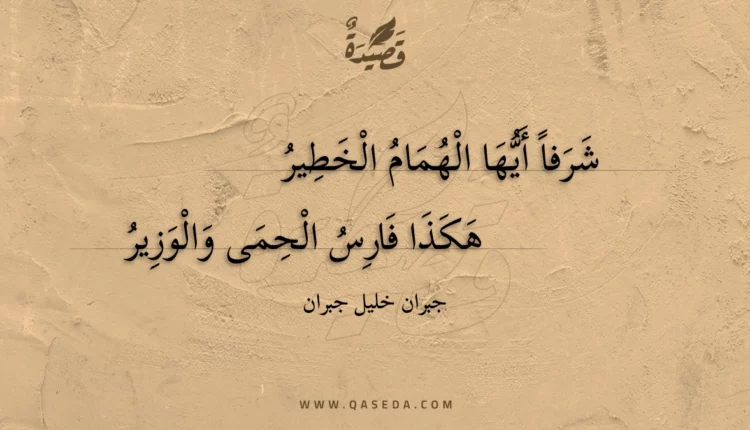 قَصِيدَةٌ
شَرَفاً أَيُّهَا الْهُمَامُ الْخَطِيرُ
هَكَذَا فَارِسُ الْحِمَى وَالْوَزِيرُ
جبران خليل جبران
WWW.QASEDA.COM